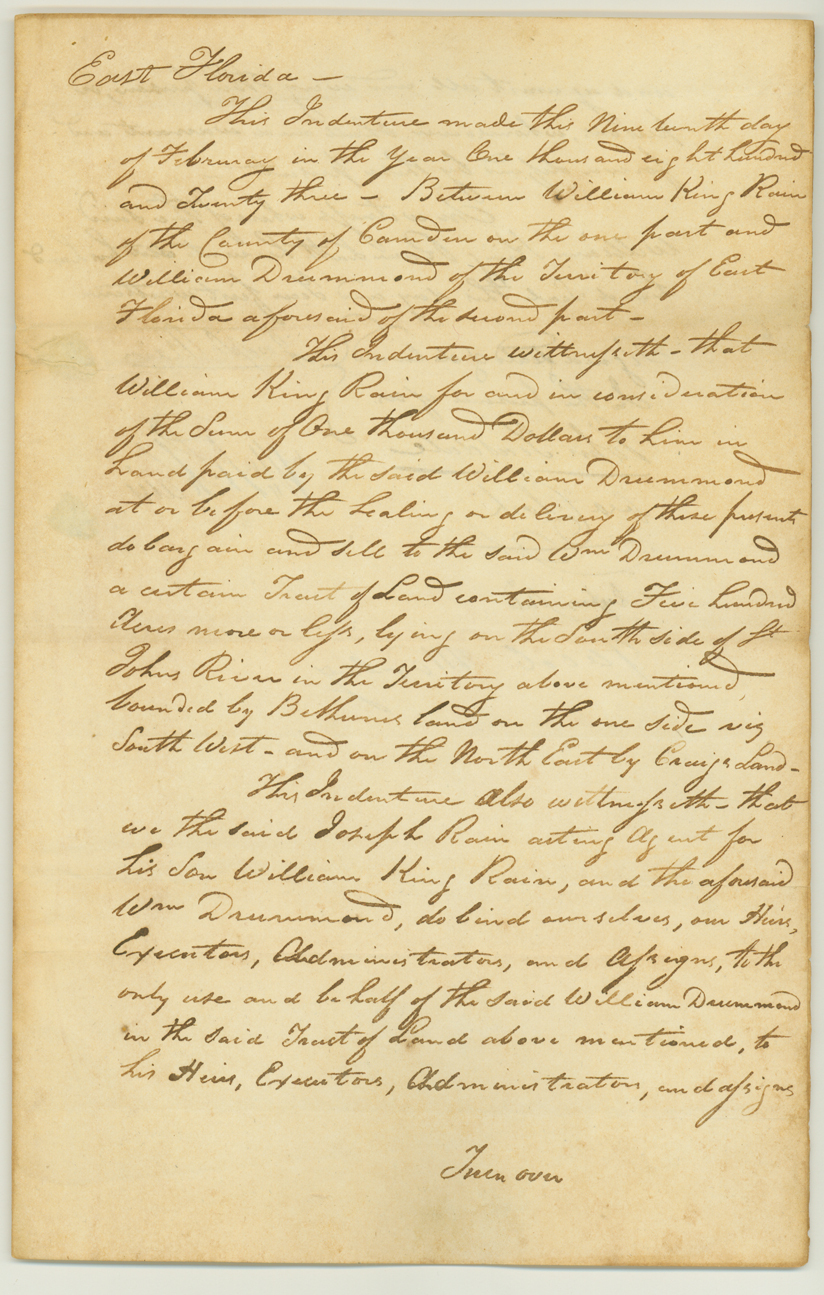 East Florida —
This Indenture made this Nineteenth day
of February in the Year One thousand eight hundred
and Twenty three — Between William King Rain
of the County of Camden on the one part and
William Drummond of the Territory of East
Florida aforesaid of the second part —
This Indenture wittnesseth — that
William King Rain for and in consideration
of the Sum of One thousand Dollars to him in
hand paid by the said William Drummond
at or before the Sealing or delivery of these presents
do bargain and sell to the said Wm Drummond
a certain Tract of Land containing Five hundred
Acres more or less, lying on the South side of St
Johns River in the Territory above mentioned,
bounded by Bethunes land on the one side viz
South West — and on the North East by Craigs Land —
This Indenture also wittnesseth — that
we the said Joseph Rain acting Agent for
his Son William King Rain, and the aforesaid
Wm Drummond, do bind ourselves, our Heirs,
Executors, Administrators, and Assigns, to the
only use and behalf of the said William Drummond
in the said Tract of Land above mentioned, to
his Heirs, Executors, Administrators, and assigns
Turn over